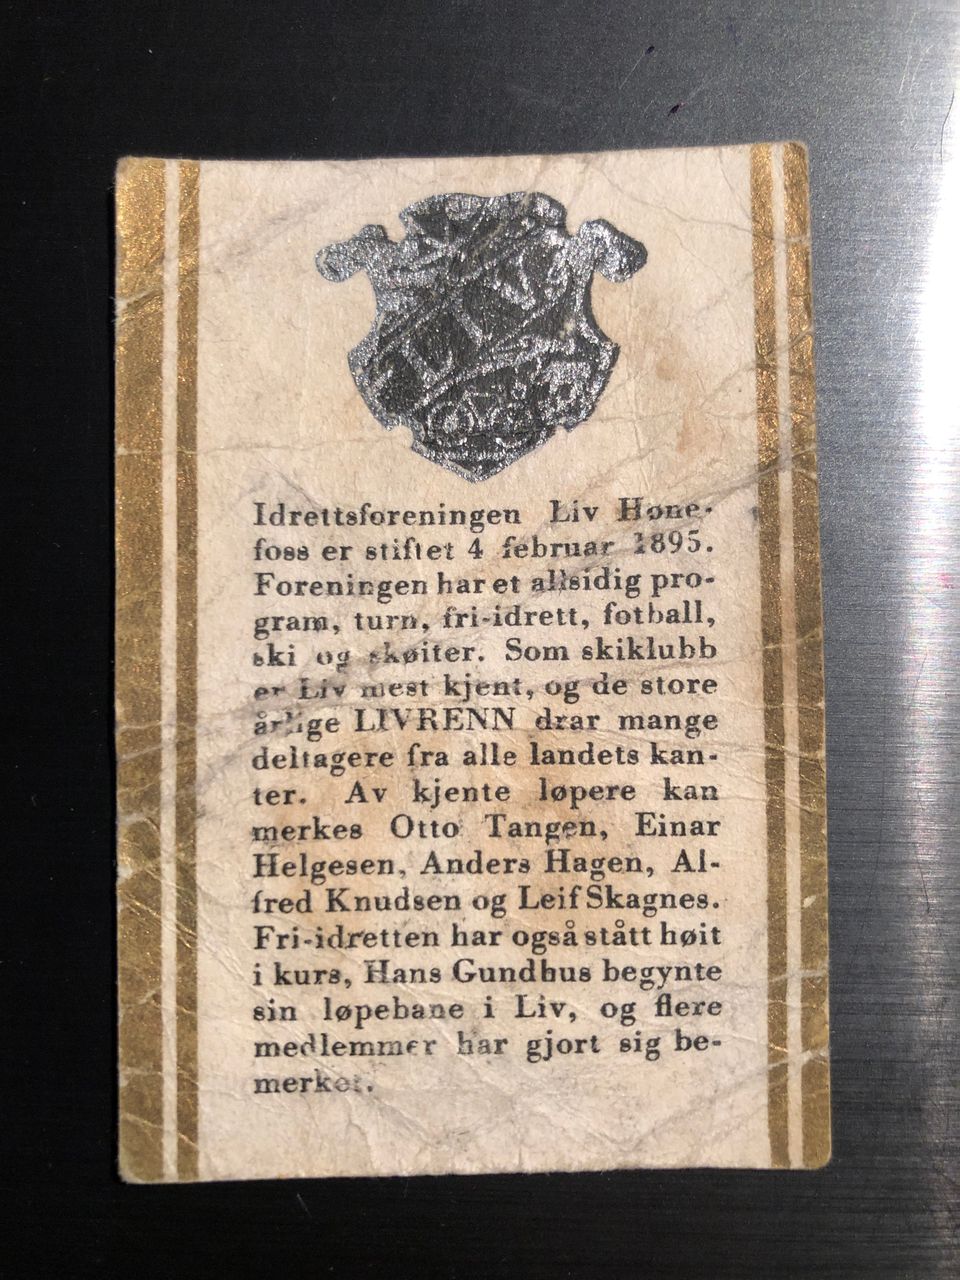 LIV
Idrettsforeningen Liv Høne-
foss er stiftet 4 februar 1895.
Foreningen har et allsidig pro-
gram, turn, fri-idrett, fotball,
ski og skøiter. Som skiklubb
er Liv mest kjent, og de store
årlige LIVRENN drar mange
deltagere fra alle landets kan-
ter. Av kjente løpere kan
merkes Otto Tangen, Einar
Helgesen, Anders Hagen, Al-
fred Knudsen og Leif Skagnes.
Fri-idretten har også stått høit
i kurs, Hans Gundhus begynte
sin løpebane i Liv, og flere
medlemmer har gjort sig be-
merket.